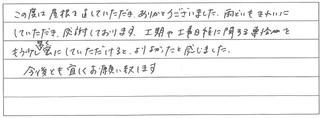 この度は屋根を直していただき、ありがとうございました。雨どいもきれいに
していただき、感謝しております。工期や工事日程に関する事前
もう少し密にしていただけると、よりよかったと感じました。
今後とも宜しくお願い致します